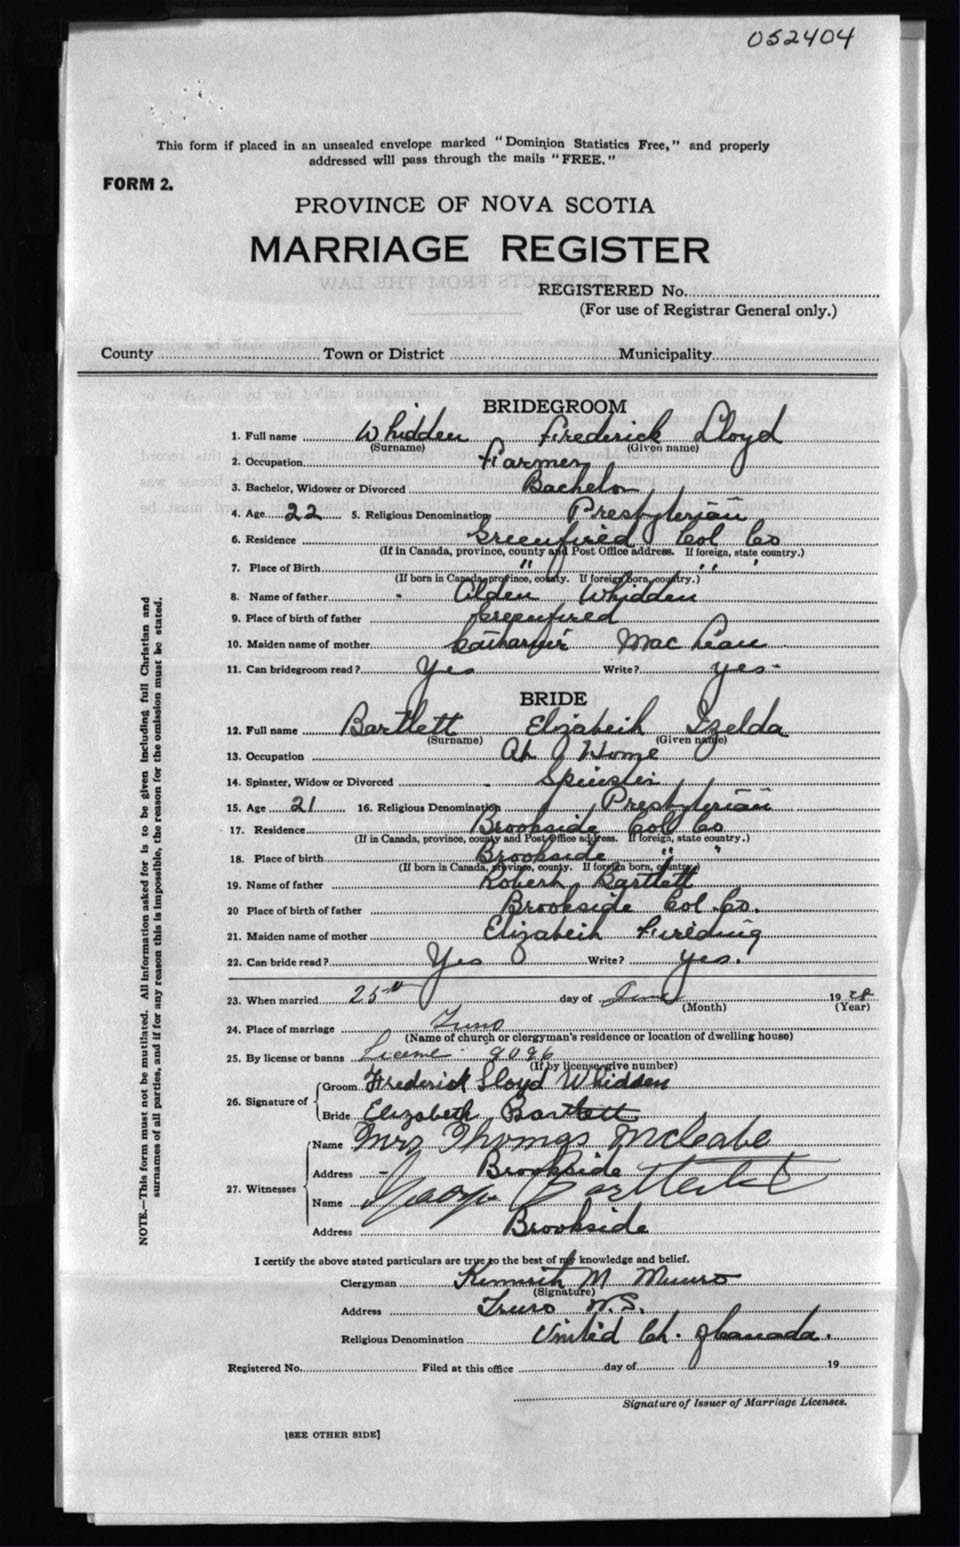 052404
This form if placed in an unsealed envelope marked "Dominion Statistics Free," and properly
addressed will pass through the mails "FREE."
FORM 2.
PROVINCE OF NOVA SCOTIA
MARRIAGE REGISTER
EXTRACTS FROM THE LAW
REGISTERED No.
(For use of Registrar General only.)
County Town or District Municipality
BRIDEGROOM
1. Full name Whidden Frederick Lloyd
(Surname) (Given name)
2. Occupation Farmer
3. Bachelor, Widower or Divorced Bachelor
4. Age 22 5. Religious Denomination Presbyterian
6. Residence Greenfield Col Co
(If in Canada, province, county and Post Office address. If foreign, state country.)
7. Place of Birth " " "
(If born in Canada, province, county. If foreign born, country.)
8. Name of father Alden Whidden
9. Place of birth of father Greenfield
10. Maiden name of mother Catharine MacLean
11. Can bridegroom read? Yes Write? yes
BRIDE
12. Full name Bartlett Elizabeth Izelda
(Surname) (Given name)
13. Occupation At Home
14. Spinster, Widow or Divorced Spinster
15. Age 21 16. Religious Denomination Presbyterian
17. Residence Brookside Col Co
(If in Canada, province, county and Post Office address. If foreign, state country.)
18. Place of birth Brookside " "
(If born in Canada, province, county. If foreign born, country)
19. Name of father Robert Bartlett
20 Place of birth of father Brookside Col. Co.
21. Maiden name of mother Elizabeth Fielding
22. Can bride read? Yes Write? yes.
23. When married 25th day of June 1928
(Month) (Year)
24. Place of marriage Truro
(Name of church or clergyman's residence or location of dwelling house)
25. By license or banns License 9096
(If by license, give number)
26. Signature of Groom Frederick Lloyd Whidden
Bride Elizabeth Bartlett
27. Witnesses Name Mrs Thomas McCabe
Address Brookside
Name George Bartlett
Address Brookside
I certify the above stated particulars are true to the best of my knowledge and belief.
Clergyman Kenneth M Munro
(Signature)
Address Truro N.S.
Religious Denomination United Ch. of Canada.
Registered No. Filed at this office day of 19
Signature of Issuer of Marriage Licenses.
[SEE OTHER SIDE]
NOTE.—This form must not be mutilated. All information asked for is to be given including full Christian and
surnames of all parties, and if for any reason this is impossible, the reason for the omission must be stated.